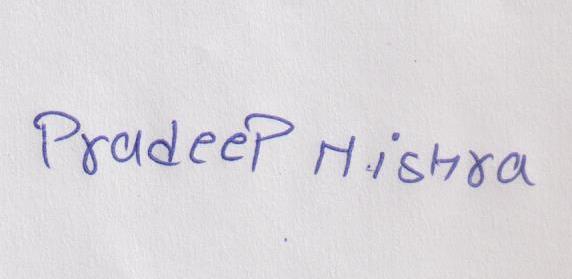 Pradeep Mishra